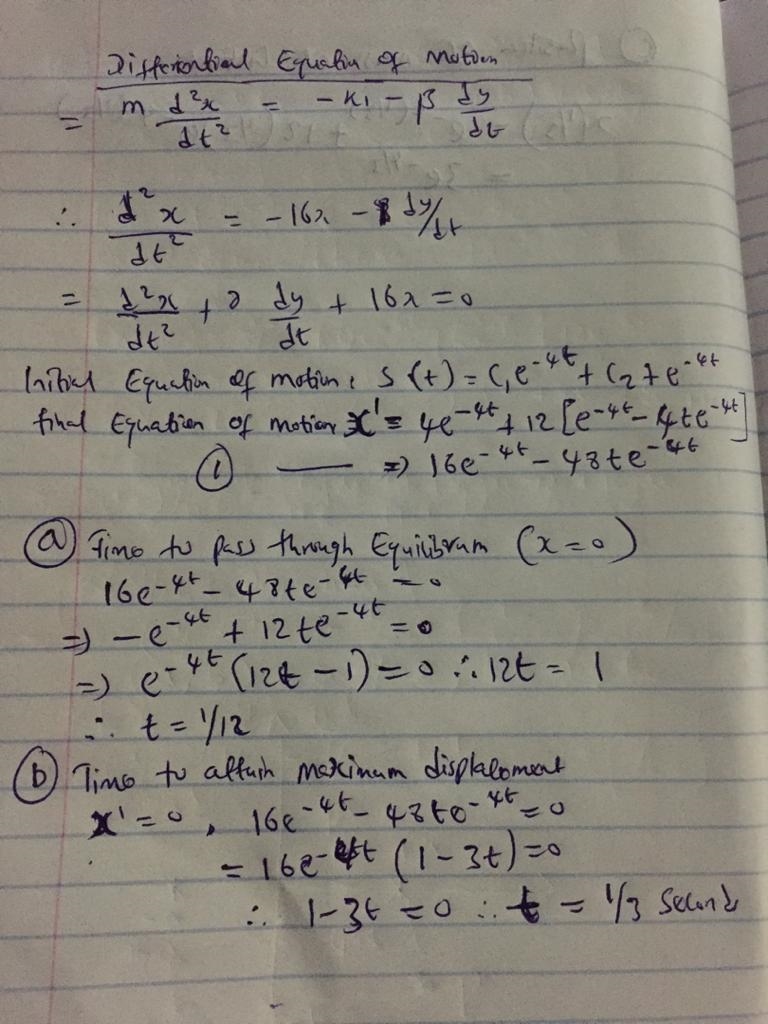 Differential Equation of Motion
= m d²x/dt² = -K1 - β dy/dt
∴ d²x/dt² = -16x - 8 dy/dt
= d²x/dt² + 8 dy/dt + 16x = 0
Initial Equation of motion: S(t) = C₁e^-4t + C₂te^-4t
final Equation of motion x' = 4e^-4t + 12[e^-4t - 4te^-4t]
① —— => 16e^-4t - 48te^-4t
ⓐ Time to pass through Equilibrum (x=0)
16e^-4t - 48te^-4t = 0
=> -e^-4t + 12te^-4t = 0
=> e^-4t (12t - 1) = 0 ∴ 12t = 1
∴ t = 1/12
ⓑ Time to attain maximum displacement
x' = 0, 16e^-4t - 48te^-4t = 0
= 16e^-4t (1 - 3t) = 0
∴ 1 - 3t = 0 ∴ t = 1/3 Seconds